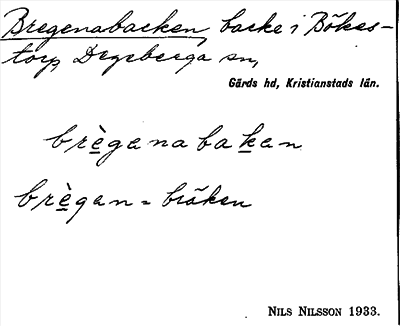 Bregenabacken, backe i Bökes-
torp, Degeberga sn,
Gärds hd, Kristianstads län.
brègenabakan
brègan = bräken
NILS NILSSON 1933.